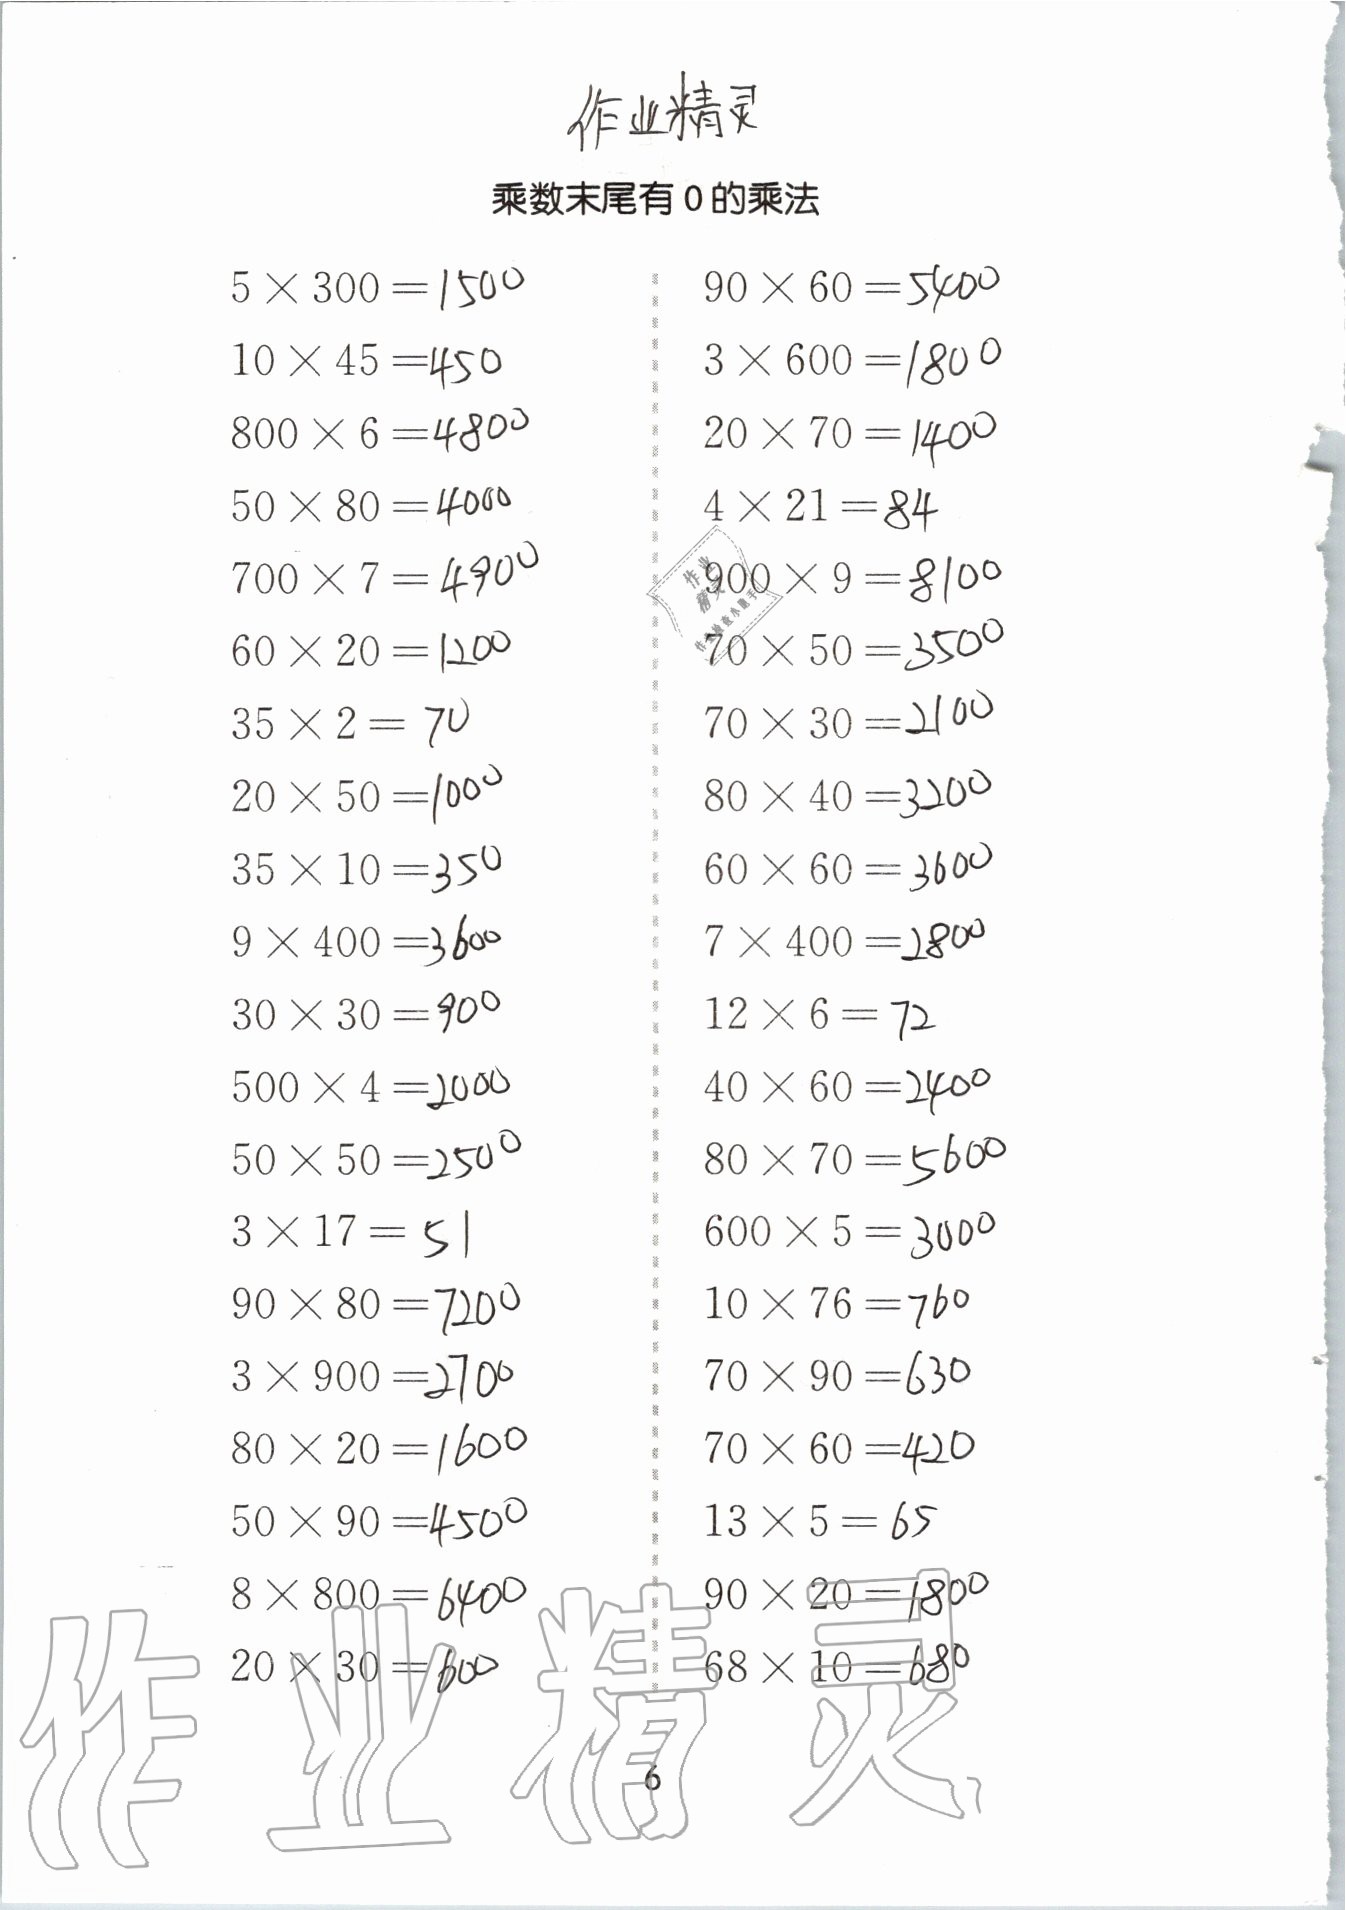 作业精灵
乘数末尾有0的乘法
5×300=1500
10×45=450
800×6=4800
50×80=4000
700×7=4900
60×20=1200
35×2=70
20×50=1000
35×10=350
9×400=3600
30×30=900
500×4=2000
50×50=2500
3×17=51
90×80=7200
3×900=2700
80×20=1600
50×90=4500
8×800=6400
20×30=600
90×60=5400
3×600=1800
20×70=1400
4×21=84
900×9=8100
70×50=3500
70×30=2100
80×40=3200
60×60=3600
7×400=2800
12×6=72
40×60=2400
80×70=5600
600×5=3000
10×76=760
70×90=630
70×60=420
13×5=65
90×20=1800
68×10=680
作业
精灵
作业检查小助手
作业精灵
6